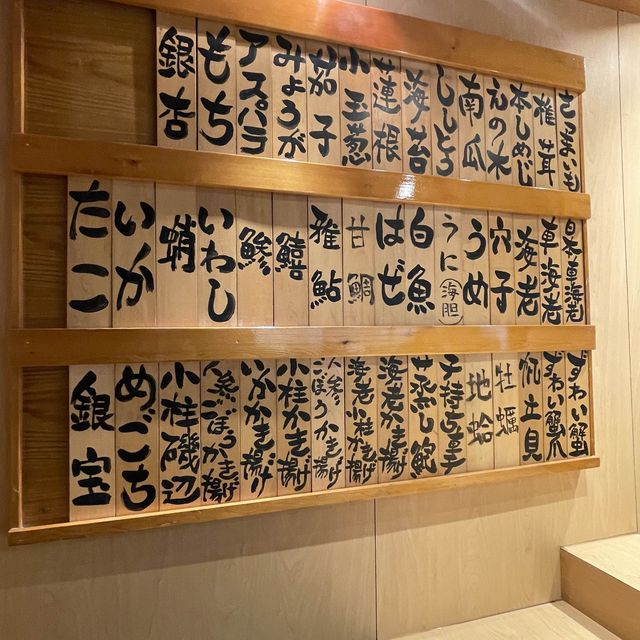 さつまいも
椎茸
本しめじ
えの木
南瓜
ししとう
海苔
蓮根
小玉葱
茄子
みょうが
アスパラ
もち
銀杏
車海老
海老
穴子
うめ
うに(海胆)
白魚
はぜ
甘鯛
稚鮎
鱚
鯵
いわし
蛸
いか
たこ
ずわい蟹
ずわい蟹爪
帆立貝
牡蠣
地蛤
蒸し鮑
海老かき揚げ
海老小柱かき揚げ
人参ごぼうかき揚
小柱かき揚げ
いかかき揚げ
人参ごぼうかき揚げ
小柱磯辺
めごち
銀宝